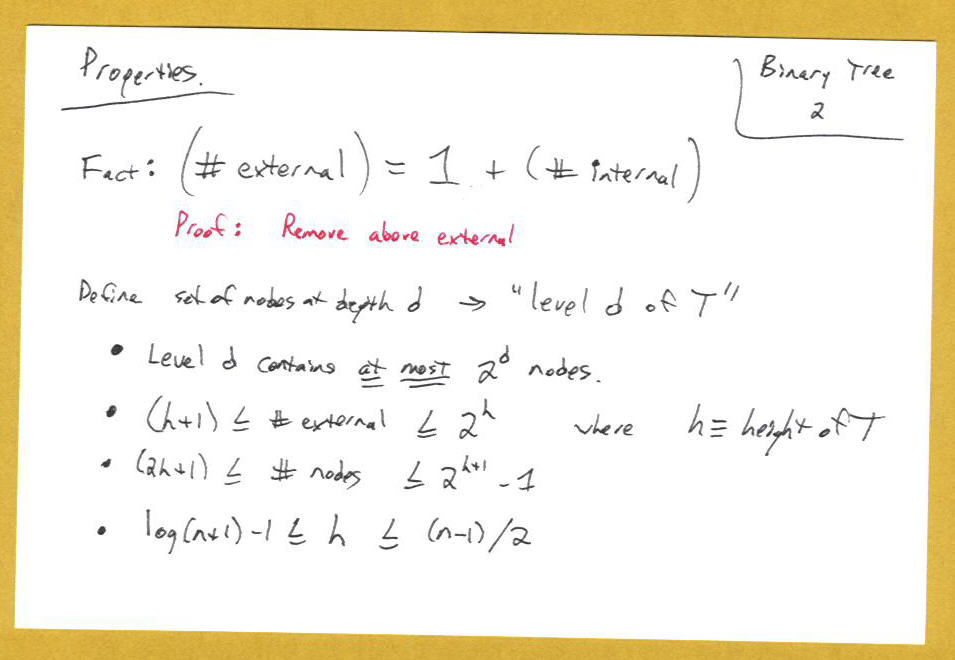 Properties.
Binary Tree
2
Fact: (# external) = 1 + (# internal)
Proof: Remove above external
Define set of nodes at depth d → "level d of T"
• Level d contains at most 2^d nodes.
• (h+1) ≤ # external ≤ 2^h where h ≡ height of T
• (2h+1) ≤ # nodes ≤ 2^(h+1) - 1
• log(n+1)-1 ≤ h ≤ (n-1)/2